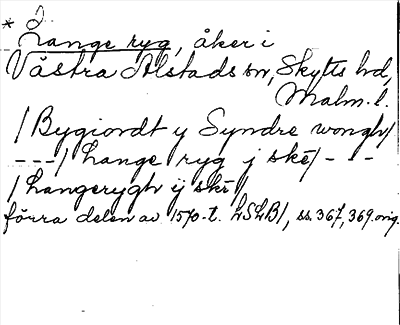 * J.
Lange ryg, åker i
Västra Alstads sn, Skytts hd,
Malm. l.
/Bygiordt y Syndre wongh/
---/Lange ryg j skē/---
/Langerygh ij skē/
förra delen av 1570-t. LSLB/, ss. 367, 369 orig.